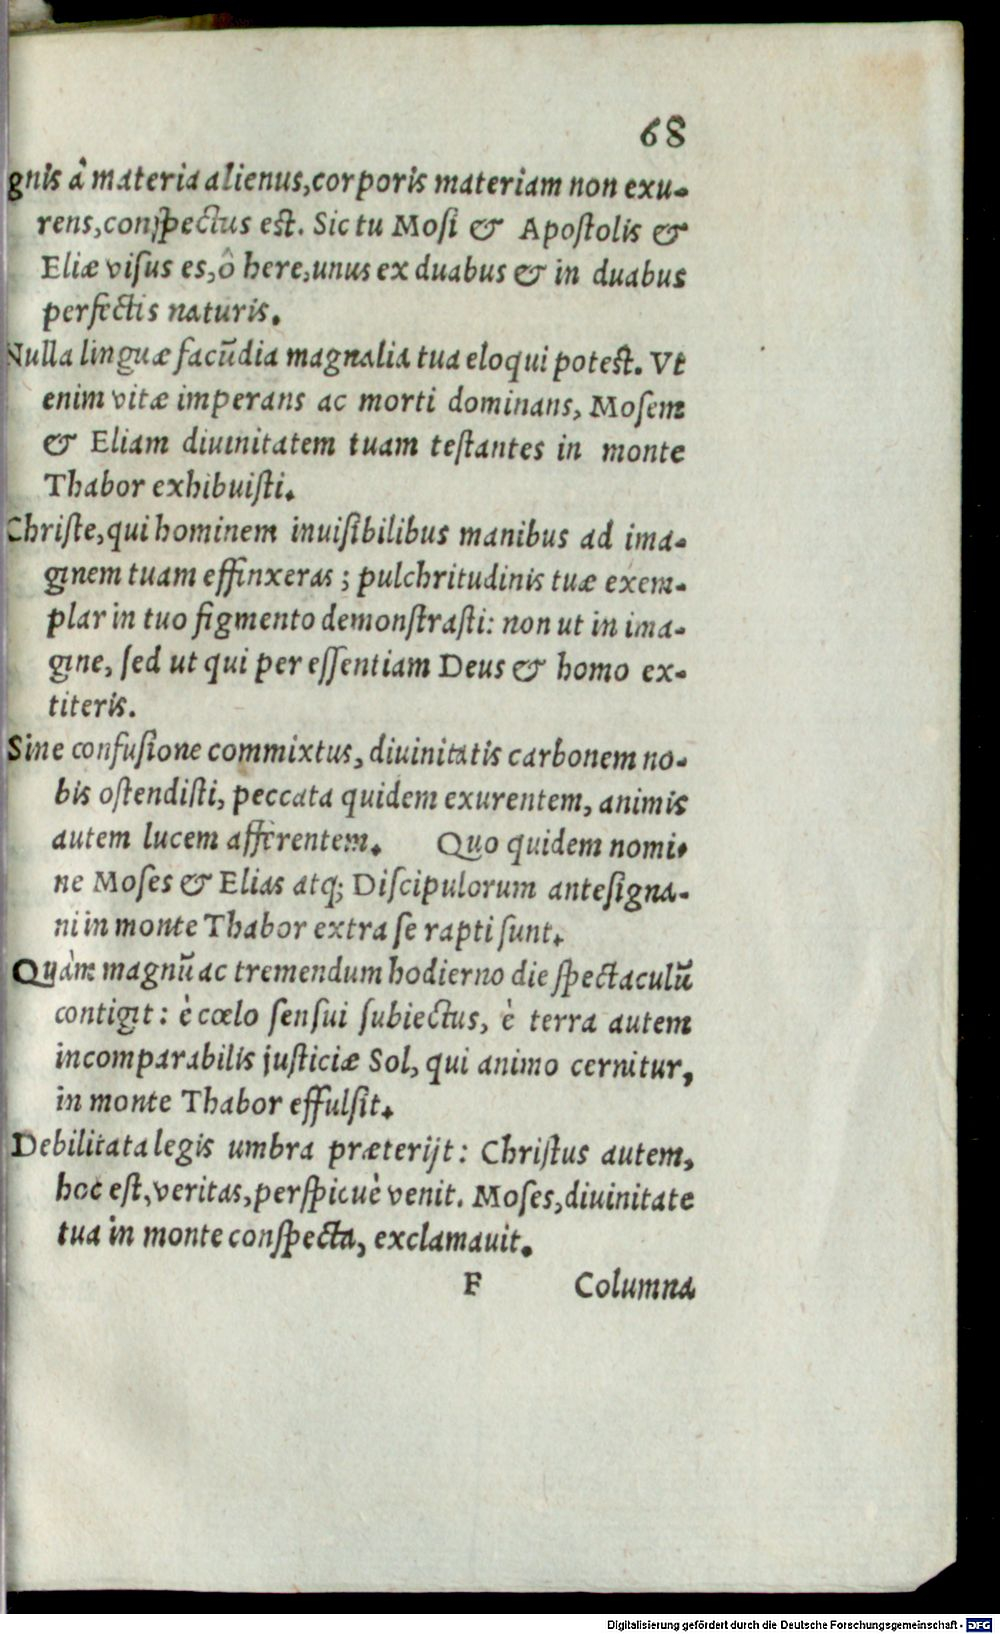 68
gnis â materia alienus, corporis materiam non exu-
rens, conspectus est. Sic tu Mosi & Apostolis &
Eliæ visus es, ô here, unus ex duabus & in duabus
perfectis naturis.
Nulla linguæ facūdia magnalia tua eloqui potest. Vt
enim vitæ imperans ac morti dominans, Mosem
& Eliam diuinitatem tuam testantes in monte
Thabor exhibuisti.
Christe, qui hominem inuisibilibus manibus ad ima-
ginem tuam effinxeras; pulchritudinis tuæ exem-
plar in tuo figmento demonstrasti: non ut in ima-
gine, sed ut qui per essentiam Deus & homo ex-
titeris.
Sine confusione commixtus, diuinitatis carbonem no-
bis ostendisti, peccata quidem exurentem, animis
autem lucem afferentem. Quo quidem nomi-
ne Moses & Elias atq; Discipulorum antesigna-
ni in monte Thabor extra se rapti sunt.
Quàm magnū ac tremendum hodierno die spectaculū
contigit: è cœlo sensui subiectus, è terra autem
incomparabilis justiciæ Sol, qui animo cernitur,
in monte Thabor effulsit.
Debilitata legis umbra præterijt: Christus autem,
hoc est, veritas, perspicuè venit. Moses, diuinitate
tua in monte conspecta, exclamauit.
F Columna
Digitalisierung gefördert durch die Deutsche Forschungsgemeinschaft - DFG